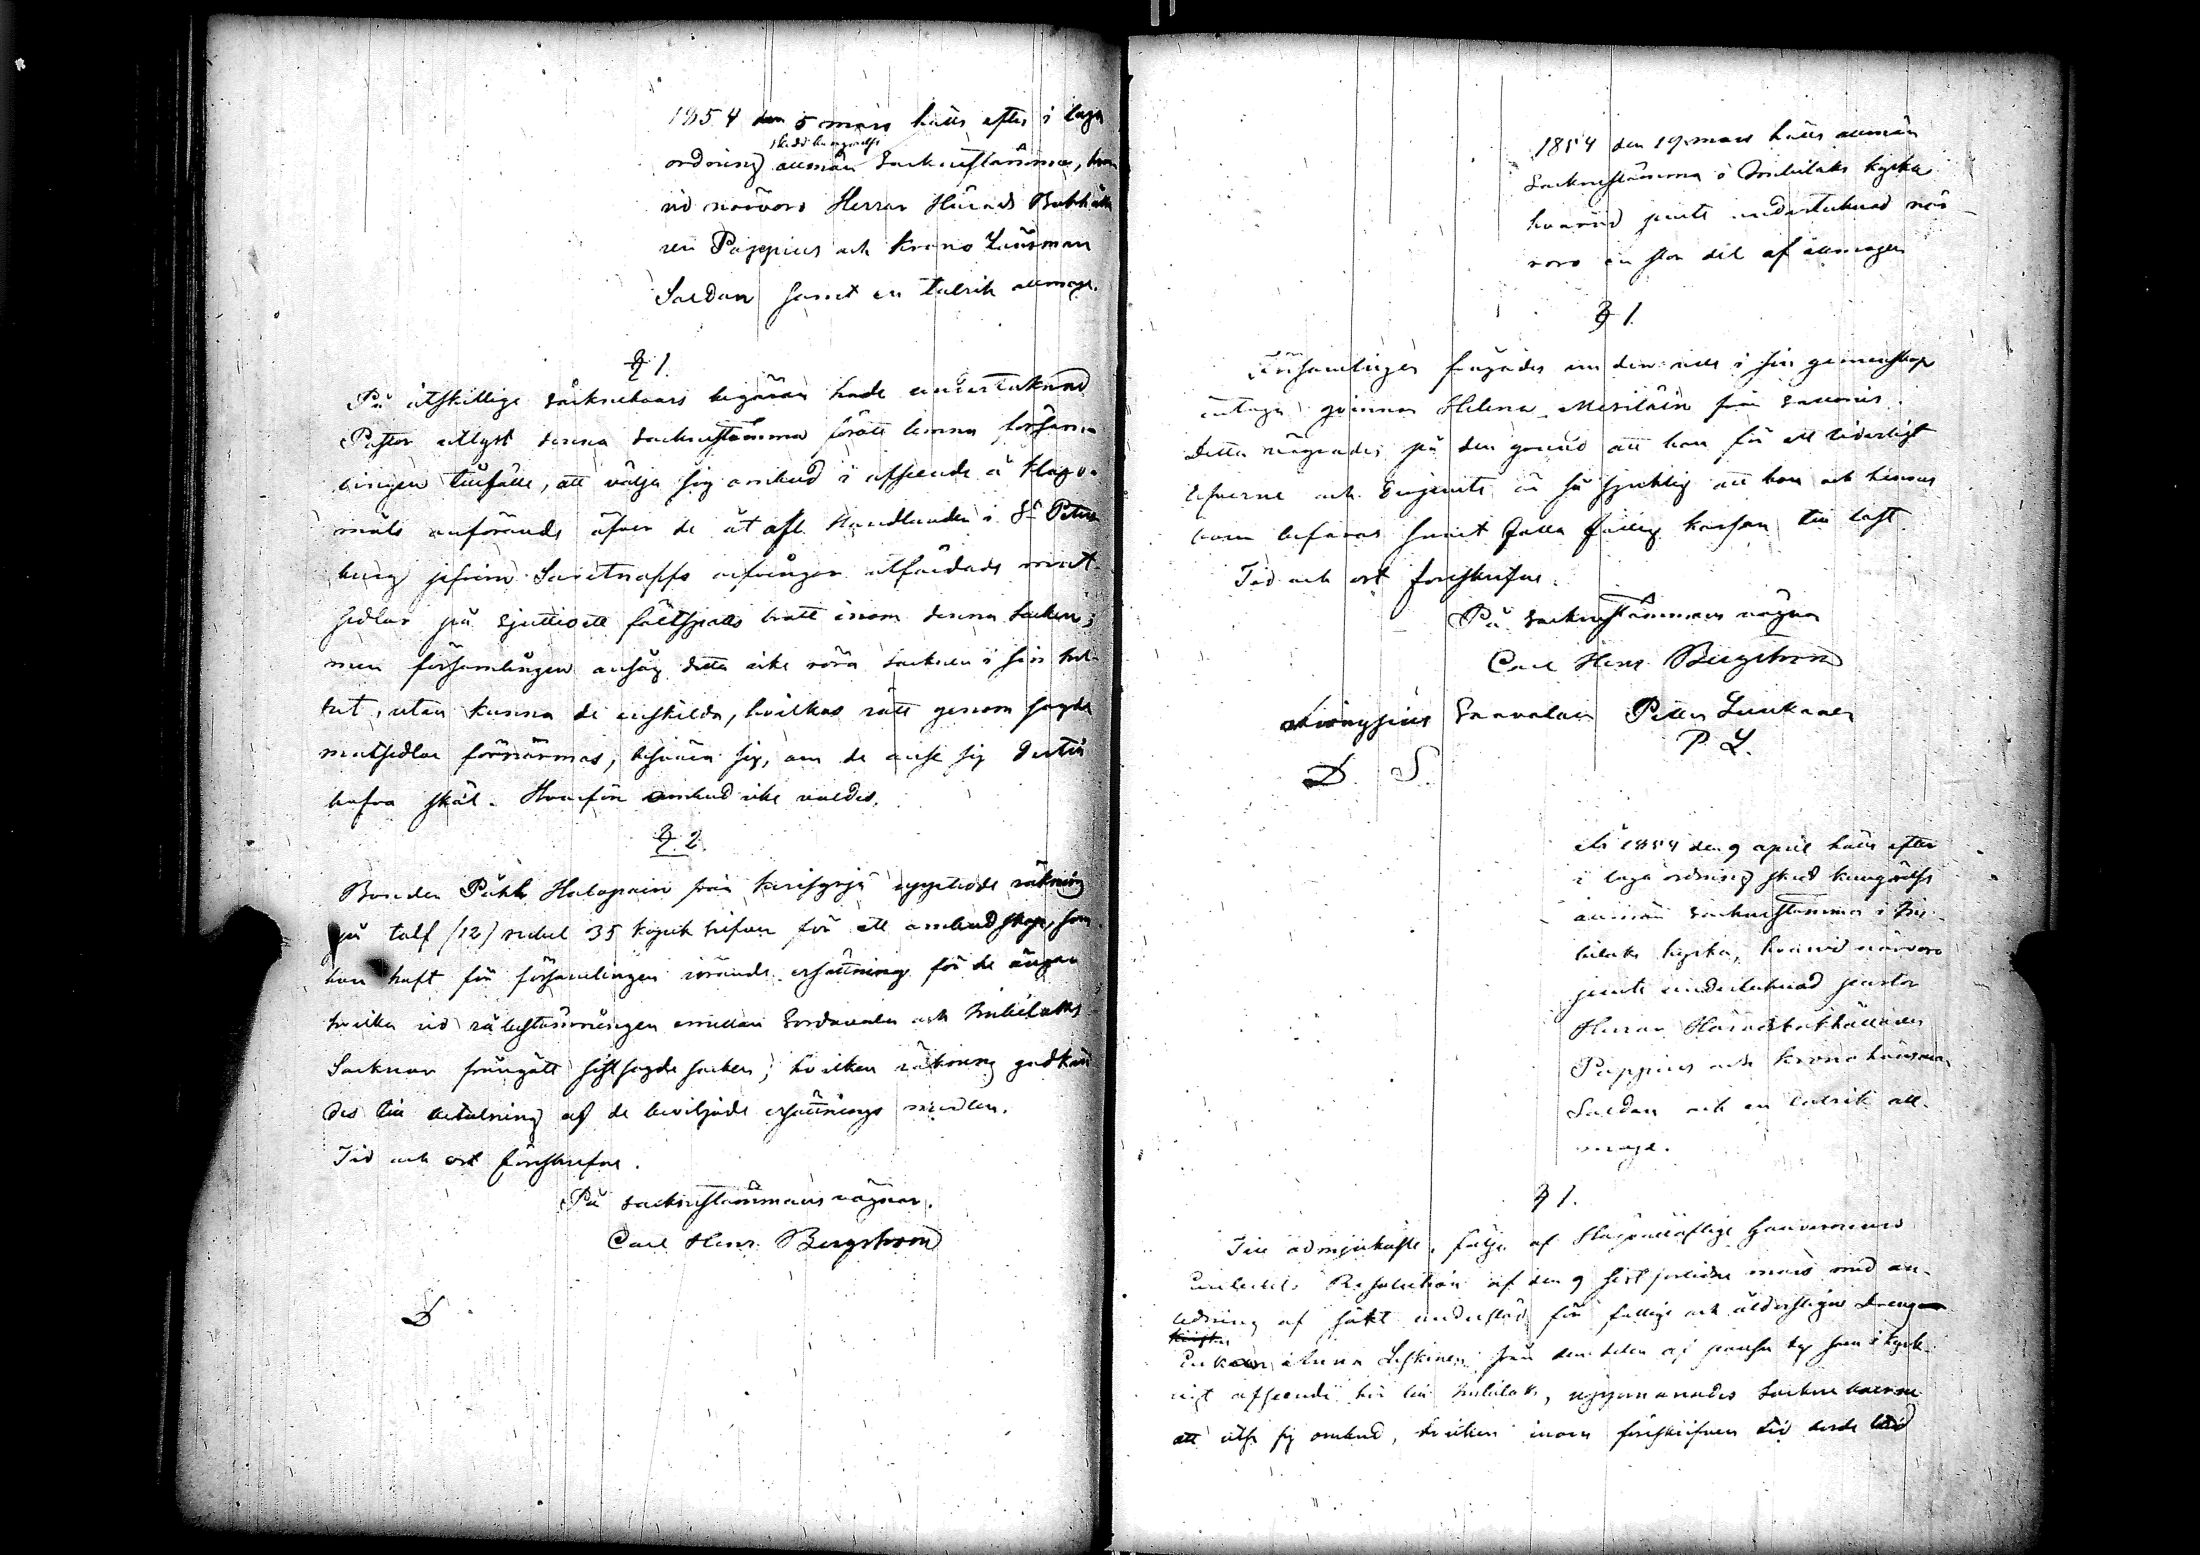 1854 den 5 mars hölls efter i laga
skedd kungörelse
ordning allmän Sockenstämma, hvar
vid närvoro Herrar Härads Bokhålla
ren Pappius och Krono Länsman
Saldan samt en talrik allmoge.
§ 1.
På åtskillige Sockneboars begäran hade undertecknad
Pastor utlyst denna Sockenstämma för att lemna försam
lingen tillfälle, att välja sig ombud i afseende å klago-
måls anförande öfver de åt afl. Handlanden i S:t Peters
burg arfvingar utfärdade mut
sedlar på sjuttioett fältspatts brott inom denna Socken;
men församlingen ansåg detta icke röra Socknen i sin hel-
het, utan kunna de enskilda, hvilkas rätt genom sagde
mutsedlar förnärmas, besvära sig, om de anse sig dertill
hafva skäl. Hvarföre ombud icke valdes.
§ 2.
Bonden Påhl Halopain från upptedde räkning
på tolf /12/ rubel 35 kopek silfver för ett ombudskap, som
han haft för församlingen rörande ersättning för de ängar
hvilka vid råskillnaden emellan Sordavala och Imbilaks
Socknar frångått sistsagde socken; hvilken räkning godkän
des till betalning af de beviljade ersättnings medlen.
Tid och ort föreskrefne.
På Sockenstämmans vägnar.
Carl Henr. Bergstrom
D
1854 den 19 mars hölls allmän
Sockenstämma i Imbilaks kyrka
hvarvid jemte undertecknad när-
voro en stor del af allmogen
§ 1.
Församlingen frågades om den ville i sin gemenskap
intaga qvinnan Helena Mesiläin från
Detta vägrades på den grund att hon för ett liderligt
lefverne och är så sjuklig att hon och hennes
barn befaras snart falla fattig kassan till last.
Tid och ort föreskrefne.
På Sockenstämmans vägnar
Carl Henr. Bergstrom
Petter Luukanen
D S. P. L.
År 1854 den 9 april hölls efter
i laga ordning skedd kungörelse
allmän Sockenstämma i Im-
bilaks kyrka, hvarvid närvoro
jemte undertecknad pastor
Herrar Häradsbokhållaren
Pappius och Kronolänsman
Saldan och en talrik all-
moge.
§ 1.
Till ödmjukaste följe af Höglofliga Gouverneurs
Embetets Resolution af den 9 sist förlidne mars med an-
ledning af sökt understöd för fattige och ålderstigne
Enkan Anna Leskinen från den delen af som i kyrk-
ligt afseende hör till Imbilaks, uppmanades Sockneboerne
att utse sig ombud, hvilken inom föreskrifven tid borde